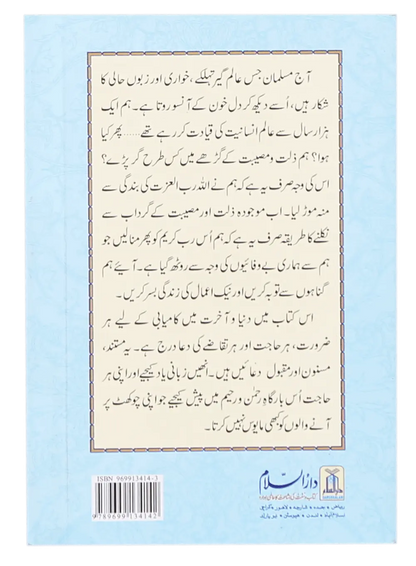 آج مسلمان جس عالم گیر تہلکے، خواری اور زبوں حالی کا
شکار ہیں، اُسے دیکھ کر دل خون کے آنسو روتا ہے۔ ہم ایک
ہزار سال سے عالم انسانیت کی قیادت کر رہے تھے...... پھر کیا
ہوا؟ ہم ذلت و مصیبت کے گڑھے میں کس طرح گر پڑے؟
اس کی وجہ صرف یہ ہے کہ ہم نے اللہ رب العزت کی بندگی سے
منہ موڑ لیا۔ اب موجودہ ذلت اور مصیبت کے گرداب سے
نکلنے کا طریقہ صرف یہ ہے کہ ہم اُس رب کریم کو پھر منالیں جو
ہم سے ہماری بے وفائیوں کی وجہ سے روٹھ گیا ہے۔ آیئے ہم
گناہوں سے توبہ کریں اور نیک اعمال کی زندگی بسر کریں۔
اس کتاب میں دنیا و آخرت میں کامیابی کے لیے ہر
ضرورت، ہر حاجت اور ہر تقاضے کی دعا درج ہے۔ یہ مستند،
مسنون اور مقبول دعائیں ہیں۔ انھیں زبانی یاد کیجیے اور اپنی ہر
حاجت اُس بارگاہِ رحمٰن و رحیم میں پیش کیجیے جو اپنی چوکھٹ پر
آنے والوں کو کبھی مایوس نہیں کرتا۔
ISBN 969913414-3
9789699134142
دارالسلام
کتاب و سنت کی اشاعت کا عالمی ادارہ
ریاض • جدہ • شارجہ • لاہور • کراچی
اسلام آباد • لندن • ہیوسٹن • نیویارک